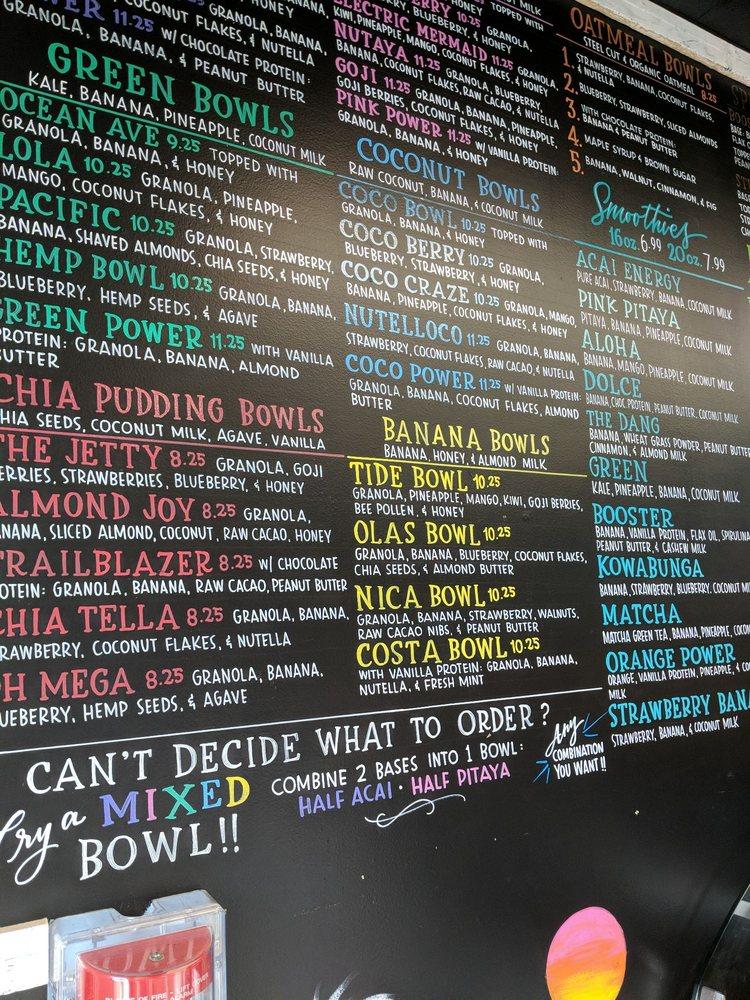 COCONUT FLAKES, & HONEY
WER 11.25 GRANOLA, BANANA,
W/ CHOCOLATE PROTEIN:
GRANOLA, BANANA, & PEANUT BUTTER
GREEN BOWLS
KALE, BANANA, PINEAPPLE, COCONUT MILK
OCEAN AVE 9.25 TOPPED WITH
GRANOLA, BANANA, & HONEY
LOLA 10.25 GRANOLA, PINEAPPLE,
MANGO, COCONUT FLAKES, & HONEY
PACIFIC 10.25 GRANOLA, STRAWBERRY,
BANANA, SHAVED ALMONDS, CHIA SEEDS, & HONEY
HEMP BOWL 10.25 GRANOLA, BANANA,
BLUEBERRY, HEMP SEEDS, & AGAVE
GREEN POWER 11.25 WITH VANILLA
PROTEIN: GRANOLA, BANANA, ALMOND
BUTTER
CHIA PUDDING BOWLS
CHIA SEEDS, COCONUT MILK, AGAVE, VANILLA
THE JETTY 8.25 GRANOLA, GOJI
ERRIES, STRAWBERRIES, BLUEBERRY, & HONEY
ALMOND JOY 8.25 GRANOLA,
ANANA, SLICED ALMOND, COCONUT, RAW CACAO, HONEY
TRAILBLAZER 8.25 W/ CHOCOLATE
OTEIN: GRANOLA, BANANA, RAW CACAO, PEANUT BUTTER
CHIA TELLA 8.25 GRANOLA, BANANA,
RAWBERRY, COCONUT FLAKES, & NUTELLA
OH MEGA 8.25 GRANOLA, BANANA,
UEBERRY, HEMP SEEDS, & AGAVE
ERRY 10.25 TOPPED WITH
BLUEBERRY, & HONEY
ELECTRIC MERMAID 11.25 GRANOLA,
KIWI, PINEAPPLE, MANGO, COCONUT FLAKES, & HONEY
NUTAYA 11.25 GRANOLA, BLUEBERRY,
BANANA, COCONUT FLAKES, RAW CACAO, & NUTELLA
GOJI 11.25 GRANOLA, BANANA, PINEAPPLE,
GOJI BERRIES, COCONUT FLAKES, & HONEY
PINK POWER 11.25 W/ VANILLA PROTEIN:
GRANOLA, BANANA, & HONEY
COCONUT BOWLS
RAW COCONUT, BANANA, & COCONUT MILK
COCO BOWL 10.25 TOPPED WITH
GRANOLA, BANANA, & HONEY
COCO BERRY 10.25 GRANOLA,
BLUEBERRY, STRAWBERRY, & HONEY
COCO CRAZE 10.25 GRANOLA, MANGO,
BANANA, PINEAPPLE, COCONUT FLAKES, & HONEY
NUTELLOCO 11.25 GRANOLA, BANANA,
STRAWBERRY, COCONUT FLAKES, RAW CACAO, & NUTELLA
COCO POWER 11.25 W/ VANILLA PROTEIN:
GRANOLA, BANANA, COCONUT FLAKES, ALMOND
BUTTER
BANANA BOWLS
BANANA, HONEY & ALMOND MILK
TIDE BOWL 10.25
GRANOLA, PINEAPPLE, MANGO, KIWI, GOJI BERRIES,
BEE POLLEN, & HONEY
OLAS BOWL 10.25
GRANOLA, BANANA, BLUEBERRY, COCONUT FLAKES,
CHIA SEEDS, & ALMOND BUTTER
NICA BOWL 10.25
GRANOLA, BANANA, STRAWBERRY, WALNUTS,
RAW CACAO NIBS, & PEANUT BUTTER
COSTA BOWL 10.25
WITH VANILLA PROTEIN: GRANOLA, BANANA,
NUTELLA, & FRESH MINT
OATMEAL BOWLS
STEEL CUT & ORGANIC OATMEAL 8.25
1. STRAWBERRY, BANANA, COCONUT FLAKES,
& NUTELLA
2. BLUEBERRY, STRAWBERRY, SLICED ALMONDS
3. WITH CHOCOLATE PROTEIN:
BANANA & PEANUT BUTTER
4. MAPLE SYRUP & BROWN SUGAR
5. BANANA, WALNUT, CINNAMON, & FIG
Smoothies
16oz 6.99 20oz. 7.99
ACAI ENERGY
PURE ACAI, STRAWBERRY, BANANA, COCONUT MILK
PINK PITAYA
PITAYA, BANANA, PINEAPPLE, COCONUT MILK
ALOHA
BANANA, MANGO, PINEAPPLE, COCONUT MILK
DOLCE
BANANA, CHOC PROTEIN, PEANUT BUTTER, COCONUT MILK
THE DANG
BANANA, WHEAT GRASS POWDER, PEANUT BUTTER
CINNAMON, & ALMOND MILK
GREEN
KALE, PINEAPPLE, BANANA, COCONUT MILK
BOOSTER
BANANA, VANILLA PROTEIN, FLAX OIL, SPIRULINA
PEANUT BUTTER, & CASHEW MILK
KOWABUNGA
BANANA, STRAWBERRY, BLUEBERRY, COCONUT MI
MATCHA
MATCHA GREEN TEA, BANANA, PINEAPPLE, COCON
ORANGE POWER
ORANGE, VANILLA PROTEIN, PINEAPPLE, & CO
MILK
STRAWBERRY BANA
STRAWBERRY, BANANA, & COCONUT MILK
CAN'T DECIDE WHAT TO ORDER?
Try a MIXED
BOWL!!
COMBINE 2 BASES INTO 1 BOWL:
HALF ACAI · HALF PITAYA
Any
COMBINATION
YOU WANT!!